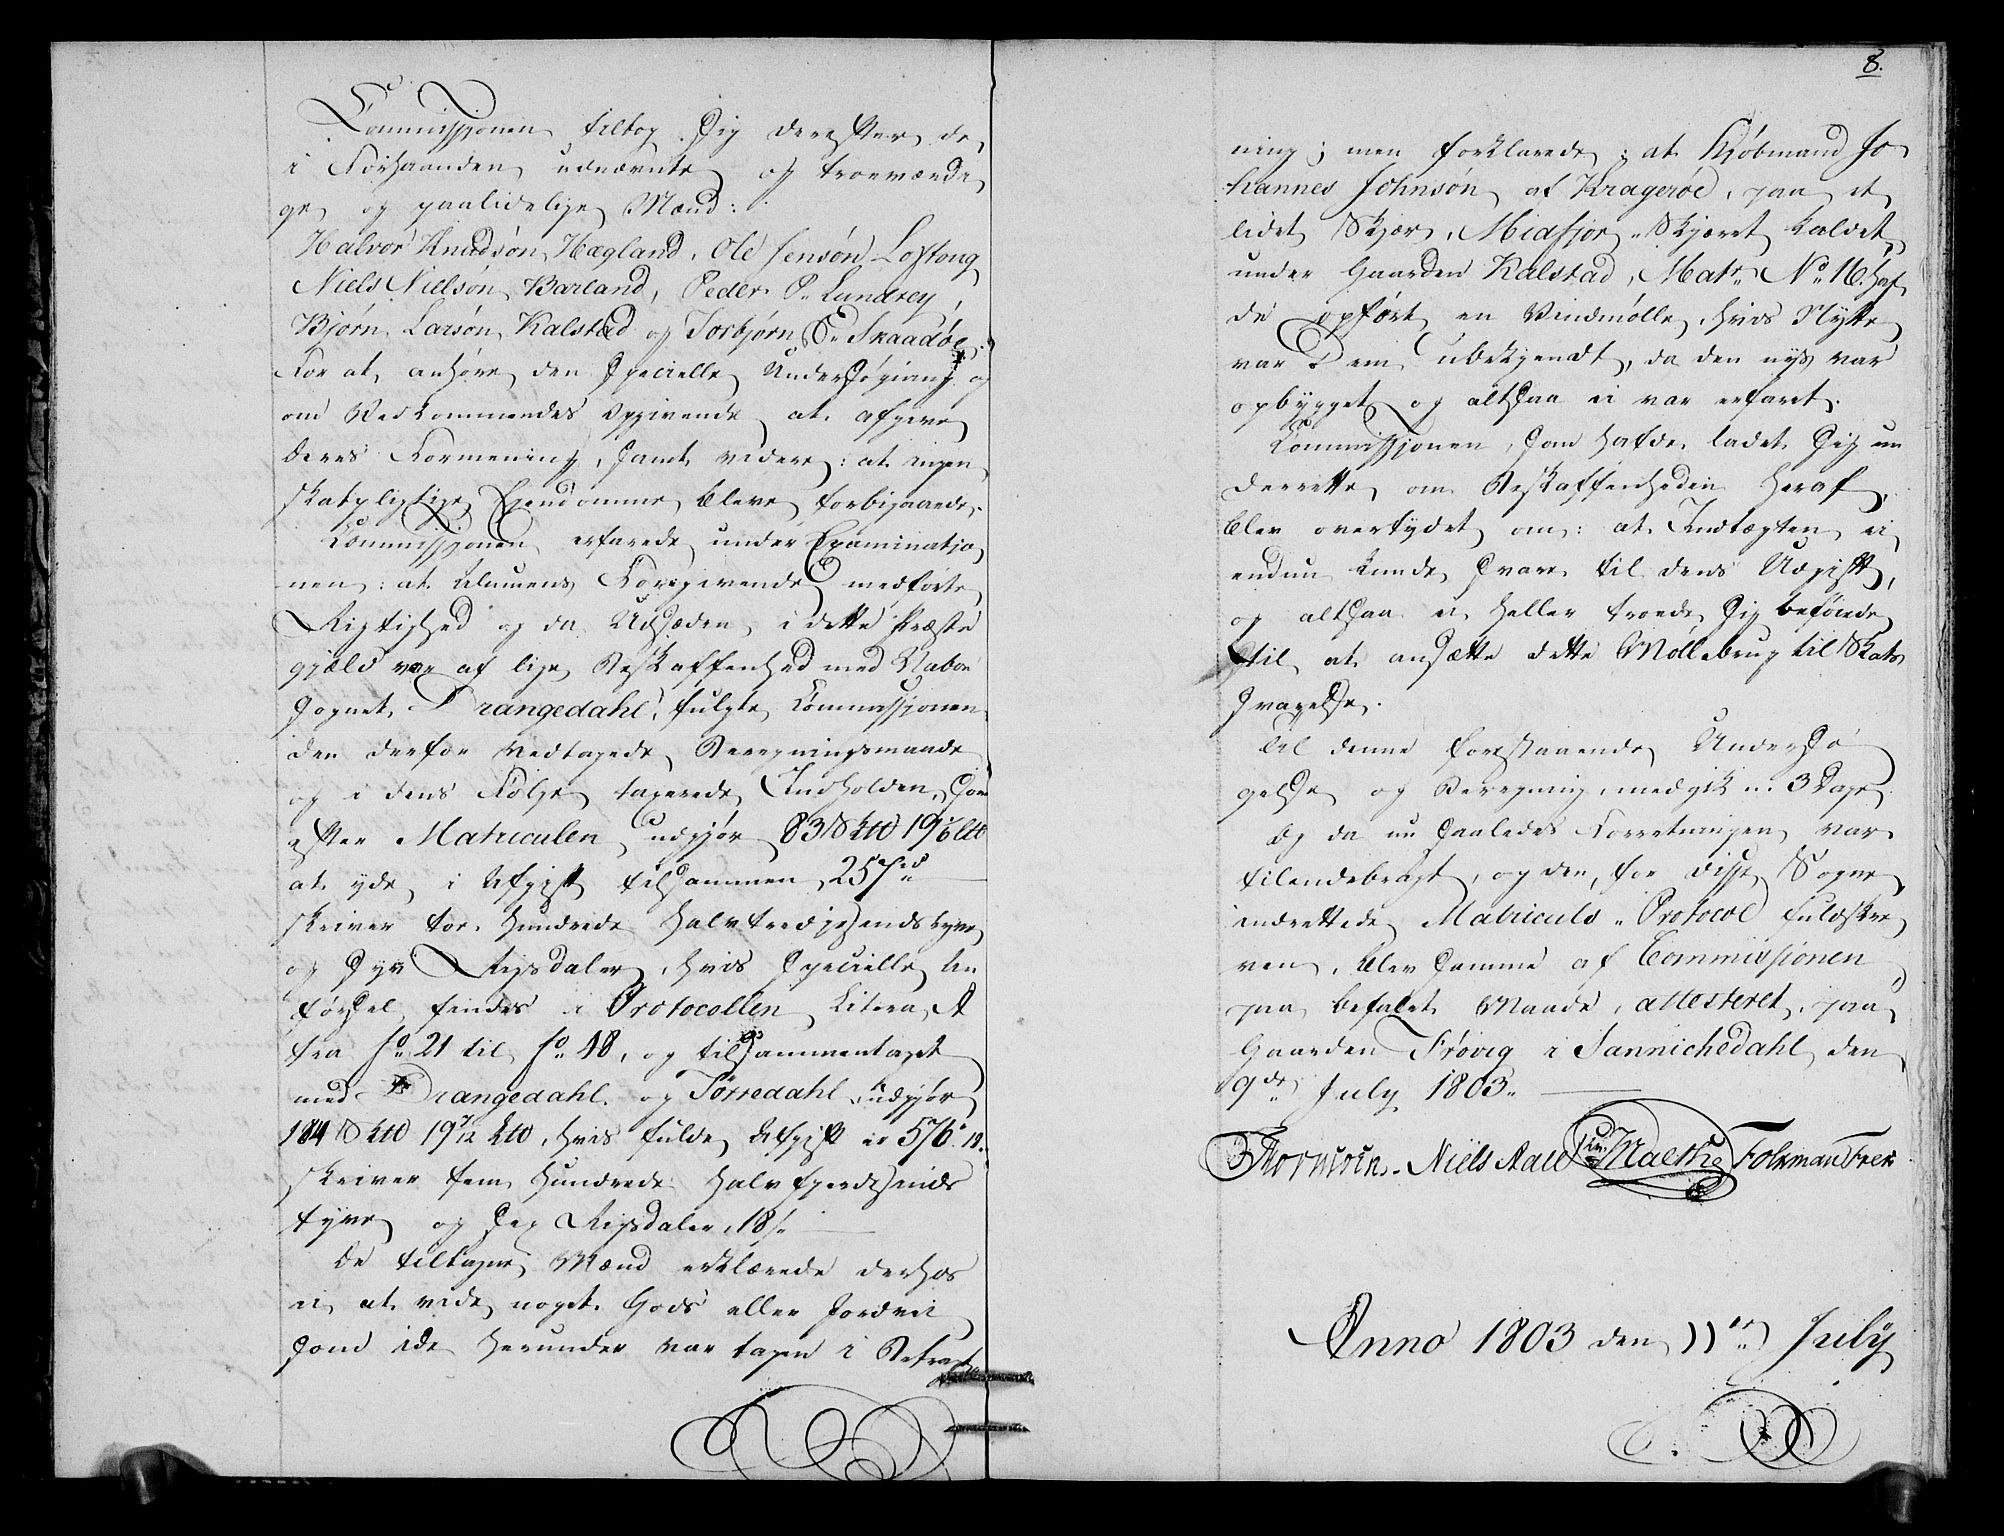 Commissjonen tiltog Sig derefter de
i Forhaanden udnævnte og troeværdi
ge og paalidelige Mænd:
Halvor Knudsøn Hægland, Ole Jensøn Loftong
Niels Nielsøn Barland, Peder P. Landrey,
Bjørn Larsøn Kalstad og Torbjørn S. Skaadøe,
For at anhøre den Specielle Undersøgning og
om Vedkommendes Opgivende at afgive
deres Formening, samt videre: at ingen
skatpligtige Ejendomme bleve forbigaaede.
Commissjonen erfarede under Examinatjo
nen: at Almuens Foregivende medførte
Rigtighed og da Udsæden i dette Præste
gjæld var af lige Beskaffenhed med Naboe
Sognet Drangedahl, fulgte Commissjonen
den derfor vedtagede Beregningsmaade
og i dens Følge taxerede Indholden, som
efter Matriculen udgjør 83 Skt
at yde i Afgift tilsammen 257 rd
skriver toe Hundrede Halvtredjesindstyve
og Syv Rigsdaler, hvis Specielle An
førsel findes i Protocollen Litera A
fra fo. 21 til fo. 48, og tilsammentaget
med Drangedahl og Tørredahl udgjør
184 Skt 19 7/12 , hvis fulde Afgift er 576. 18.
skriver fem Hundrede Halvfjerdesinds
tyve og Sex Rigsdaler, 18 s.
De tiltagne Mænd erklærede derhos
ei at vide noget Gods eller Jordvei
som ide herunder var tagen i Betragt
8.
ning; men forklarede: at Kjøbmand Jo
hannes Johnsøn af Kragerøe, paa et
lidet Skjær, Midfjor-Skjæret kaldet
under Gaarden Kalstad, Matr. No. 16. haf
de opført en Vindmølle, hvis Nytte
var Dem ubekjendt, da den nys var
opbygget og altsaa ei var erfaret.
Commissjonen, som hafde ladet Sig un
derrette om Beskaffenheden heraf,
blev overtydet om: at Indtægten ei
endnu kunde svare til dens Udgift,
og altsaa ei heller troede Sig beføiede
til at ansætte dette Møllebrug til Skats
Svarelse.
Til denne forestaaende Undersø
gelse og Beregning medgik n. 3 Dage
Og da nu saaledes Forretningen var
tilendebragt, og den, for disse Sogne
indrettede Matriculs-Protocol fuldskre
ven, blev samme af Commissionen
paa befalet Maade, attesteret, paa
Gaarden Frøvig i Sannichedahl den
9de July 1803.
Niels Aall Folkman
Anno 1803 den 11te July